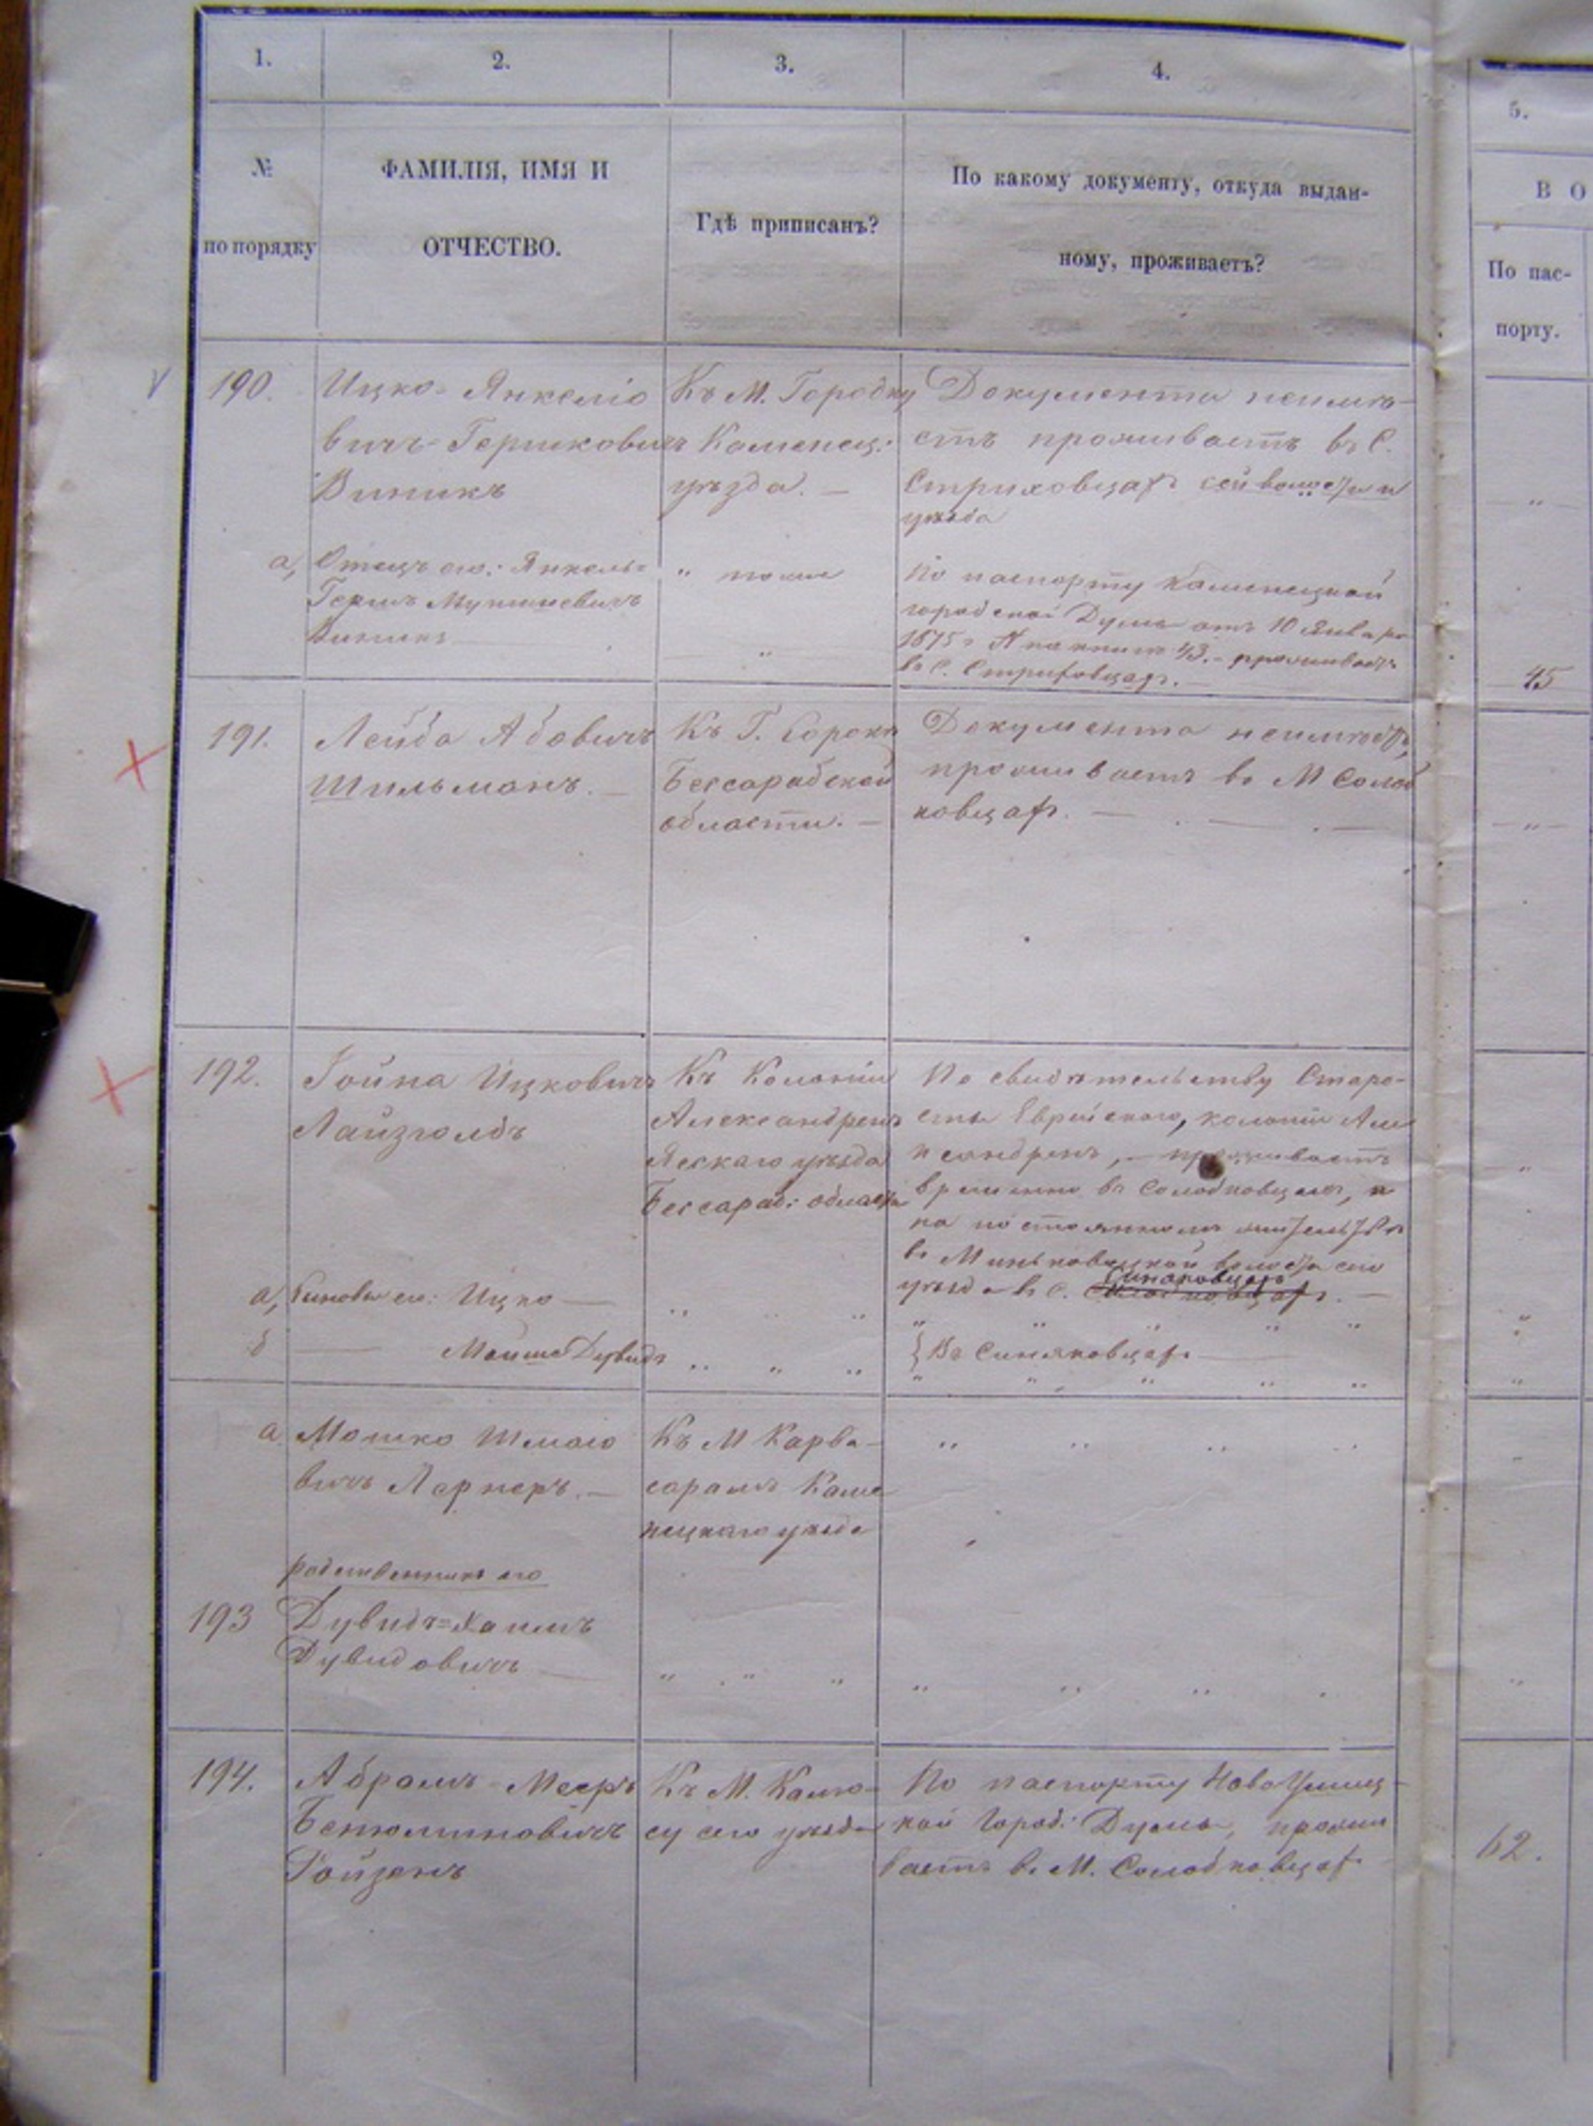 1. 2. 3. 4. 5.
№ по порядку
ФАМИЛІЯ, ИМЯ И
ОТЧЕСТВО.
Гдѣ приписанъ?
По какому документу, откуда выдан-
ному, проживаетъ?
В О
По пас-
порту.
190.
Ицко-Янкеліо
вичъ-Гершковичъ
Виникъ
Къ М. Городку
Каменец:
уѣзда. —
Документа неимѣ-
етъ проживаетъ въ С.
Стриховцахъ сей волости и
уѣзда
"
а,
Отецъ его: Янкель=
Гершъ Мункшевичъ
Виникъ
" тоже
"
По паспорту Каменецкой
городской Думы отъ 10 Января
1875 г. № по книгѣ 43. - проживаетъ
въ С. Стриховцахъ. —
45
191.
Лейба Абовичъ
Шильманъ. —
Къ Г. Сорокѣ
Бессарабской
области. —
Документа неимѣетъ,
проживаетъ въ М Солоб
ковцахъ. —
"
192.
Іойна Ицковичъ
Лайзголдъ
Къ Колоніи
Александренъ
Ясскаго уѣзда
Бессараб: области
По свидѣтельству Старо-
сты Еврейскаго, колоніи Але
ксандренъ, — проживаетъ
временно въ Солобковцахъ, а
на постоянномъ жительствѣ
въ Миньковецкой волости сего
уѣзда въ С. Синяковцахъ Солобковцахъ. —
"
а, Сыновья его: Ицко —
" " "
" " " " "
б — Мойше Дувидъ
" " "
{ Въ Синяковцахъ
" " " " "
а
Мошко Шмаіо
вичъ Лернеръ. —
Къ М Карва-
сарамъ Каме
нецкаго уѣзда
" " " "
родственникъ его
193
Дувидъ=Хаимъ
Дувидовичъ —
" " "
" " " "
194.
Абрамъ-Мееръ
Бенюминовичъ
Ройзенъ
Къ М. Калю-
су сего уѣзда
По паспорту НовоУшиц-
кой Город: Думы, прожи
ваетъ въ М. Солобковцах
62.